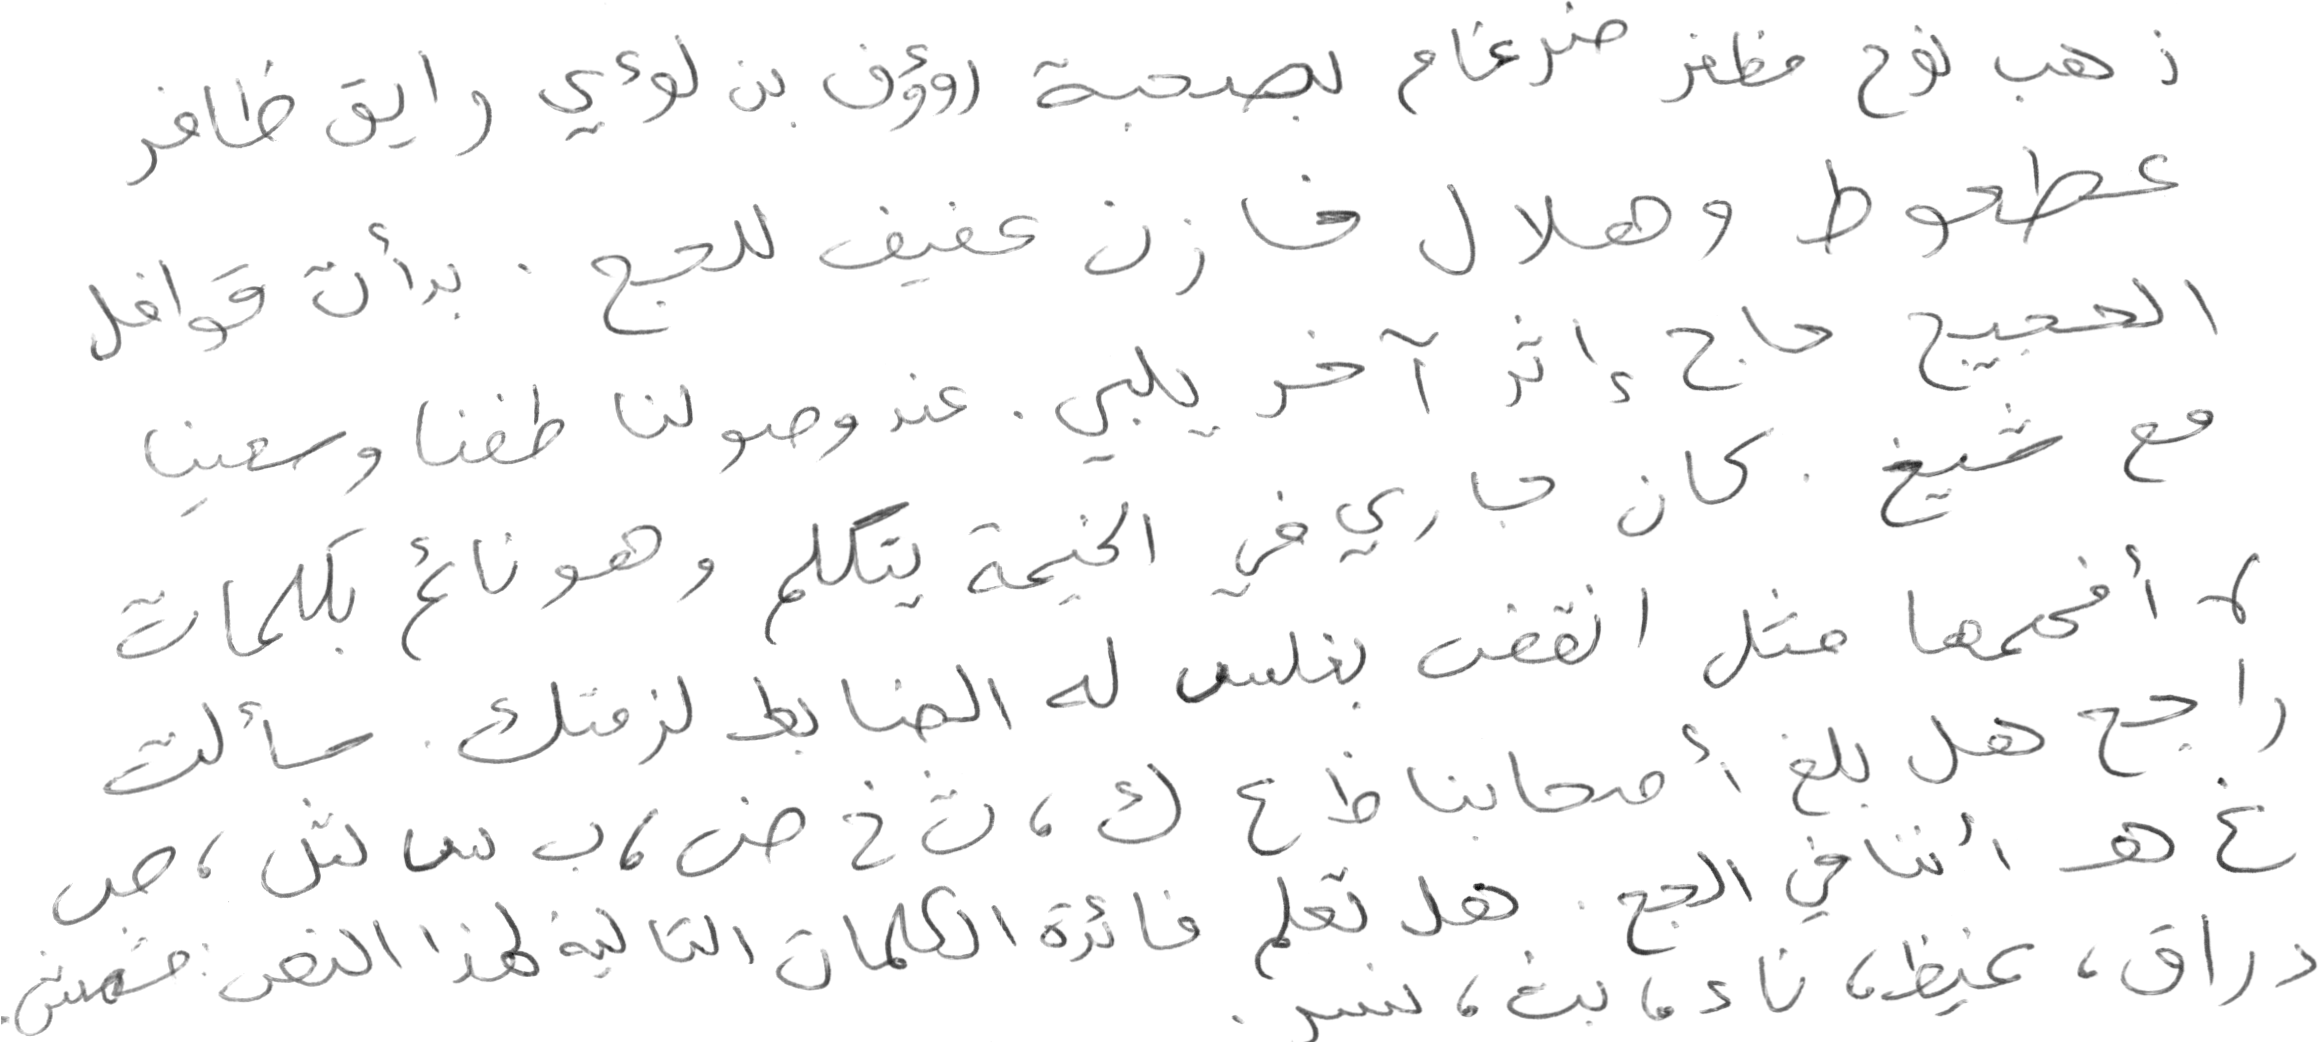 ذهب نوح مظفر ضرغام بصحبة رؤوف بن لوءي رايق ظافر
عطعوط وهلال خازن عفيف للحج . بدأت قوافل
الحجيج حاج إثر آخر يلبي . عند وصولنا طفنا وسعينا
مع شيخ . كان جاري في الخيمة يتكلم وهو نائم بكلمات
لا أفهمها مثل انقض بغلس له الضابط لزمتك . سألت
راجح هل بلغ أصحابنا ظ ع ك ، ت خ ض ، ب س لث ، ص
غ هـ أننا في الحج . هل تعلم فائدة الكلمات التالية لهذا النص : مشمش .
دراق ، غيظ ، ناء ، بث ، نسر .